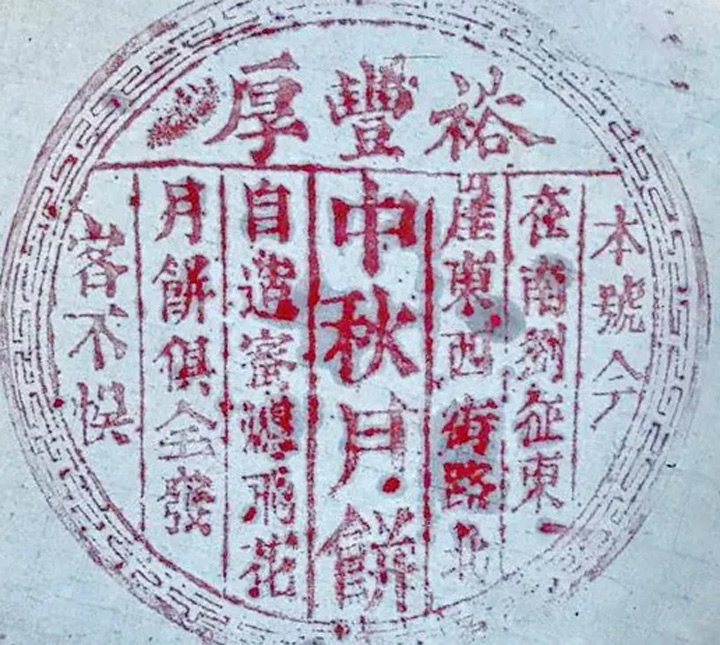 裕豐厚
本號今
在南劉征東
崖東西街路北
中秋月餅
自造蜜燈飛花
月餅俱全發
客不悞